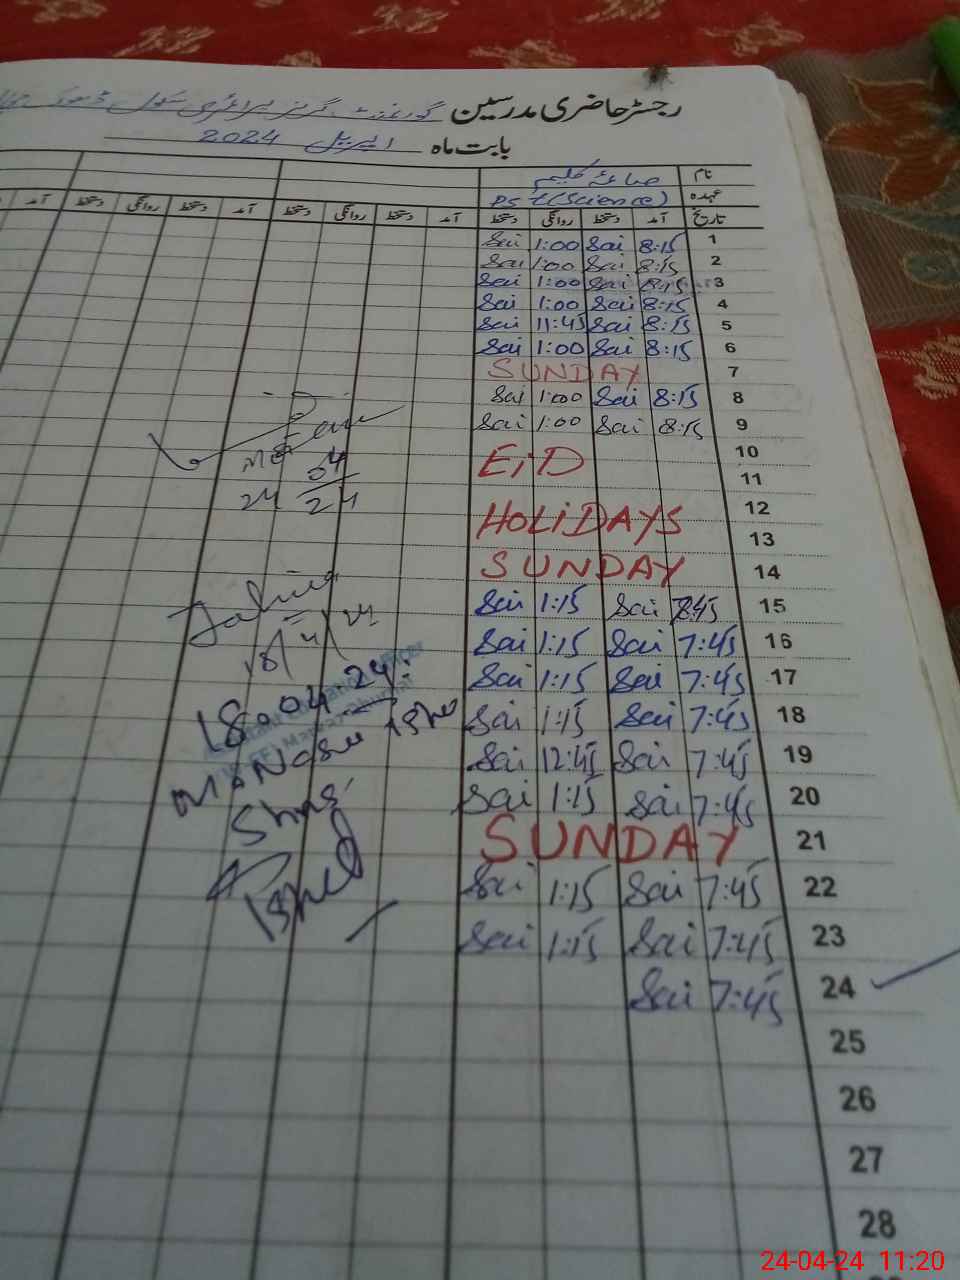 رجسٹر حاضری مدرسین گورنمنٹ گرلز پرائمری سکول ڈھوک
بابت ماہ اپریل 2024
نام صائمہ کلیم
عہدہ PST (Science)
تاریخ آمد دستخط روانگی دستخط آمد دستخط روانگی دستخط آمد دستخط روانگی دستخط آمد
1 8:15 Sai 1:00 Sai
2 8:15 Sai 1:00 Sai
3 8:15 Sai 1:00 Sai
4 8:15 Sai 1:00 Sai
5 8:15 Sai 11:45 Sai
6 8:15 Sai 1:00 Sai
7 SUNDAY
8 8:15 Sai 1:00 Sai
9 8:15 Sai 1:00 Sai
10 EiD
11
12 HOLiDAYS
13
14 SUNDAY
15 8:45 Sai 1:15 Sai
16 7:45 Sai 1:15 Sai
17 7:45 Sai 1:15 Sai
18 7:45 Sai 1:15 Sai
19 7:45 Sai 12:45 Sai
20 7:45 Sai 1:15 Sai
21 SUNDAY
22 7:45 Sai 1:15 Sai
23 7:45 Sai 1:15 Sai
24 7:45 Sai
25
26
27
28
04
24 24
18/4/24
18.04.24.
24-04-24 11:20